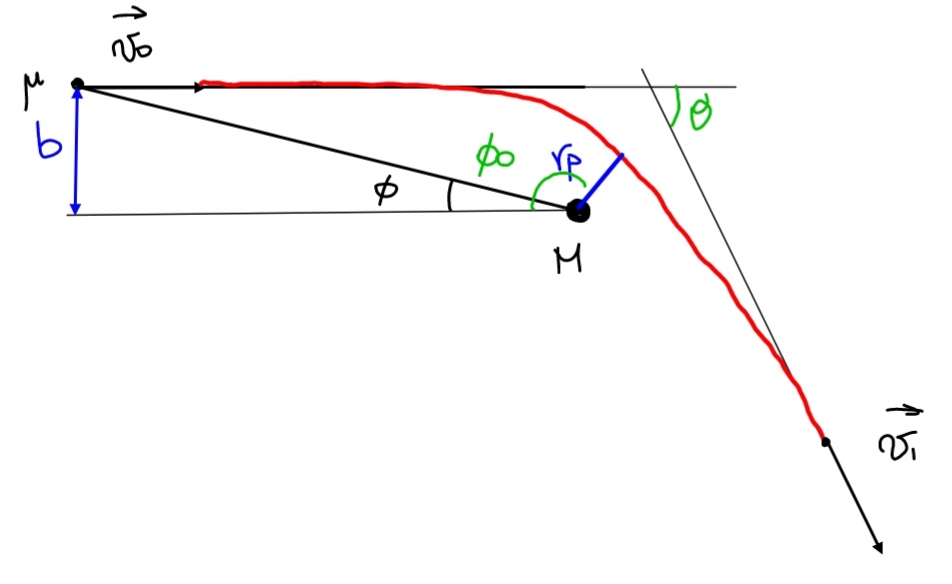 v₀
μ
b
ϕ₀
r_p
θ
ϕ
M
v₁